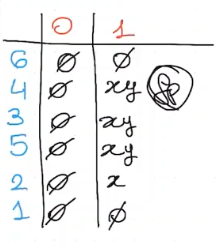 0 1
6 ∅ ∅
4 ∅ xy
3 ∅ xy
5 ∅ xy
2 ∅ x
1 ∅ ∅